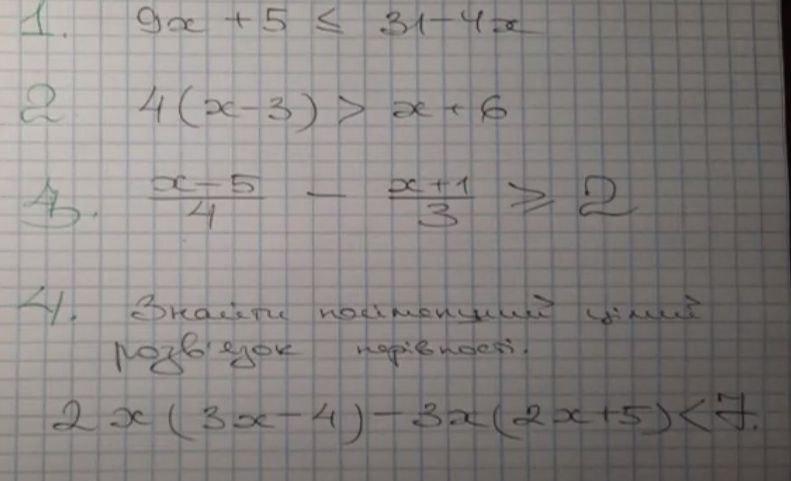 1. 9x + 5 ≤ 31 - 4x
2 4(x-3) > x + 6
3. (x-5)/4 - (x+1)/3 ≥ 2
4. Знайти найменший цілий
розв'язок нерівності.
2x(3x-4) - 3x(2x+5) < 7.